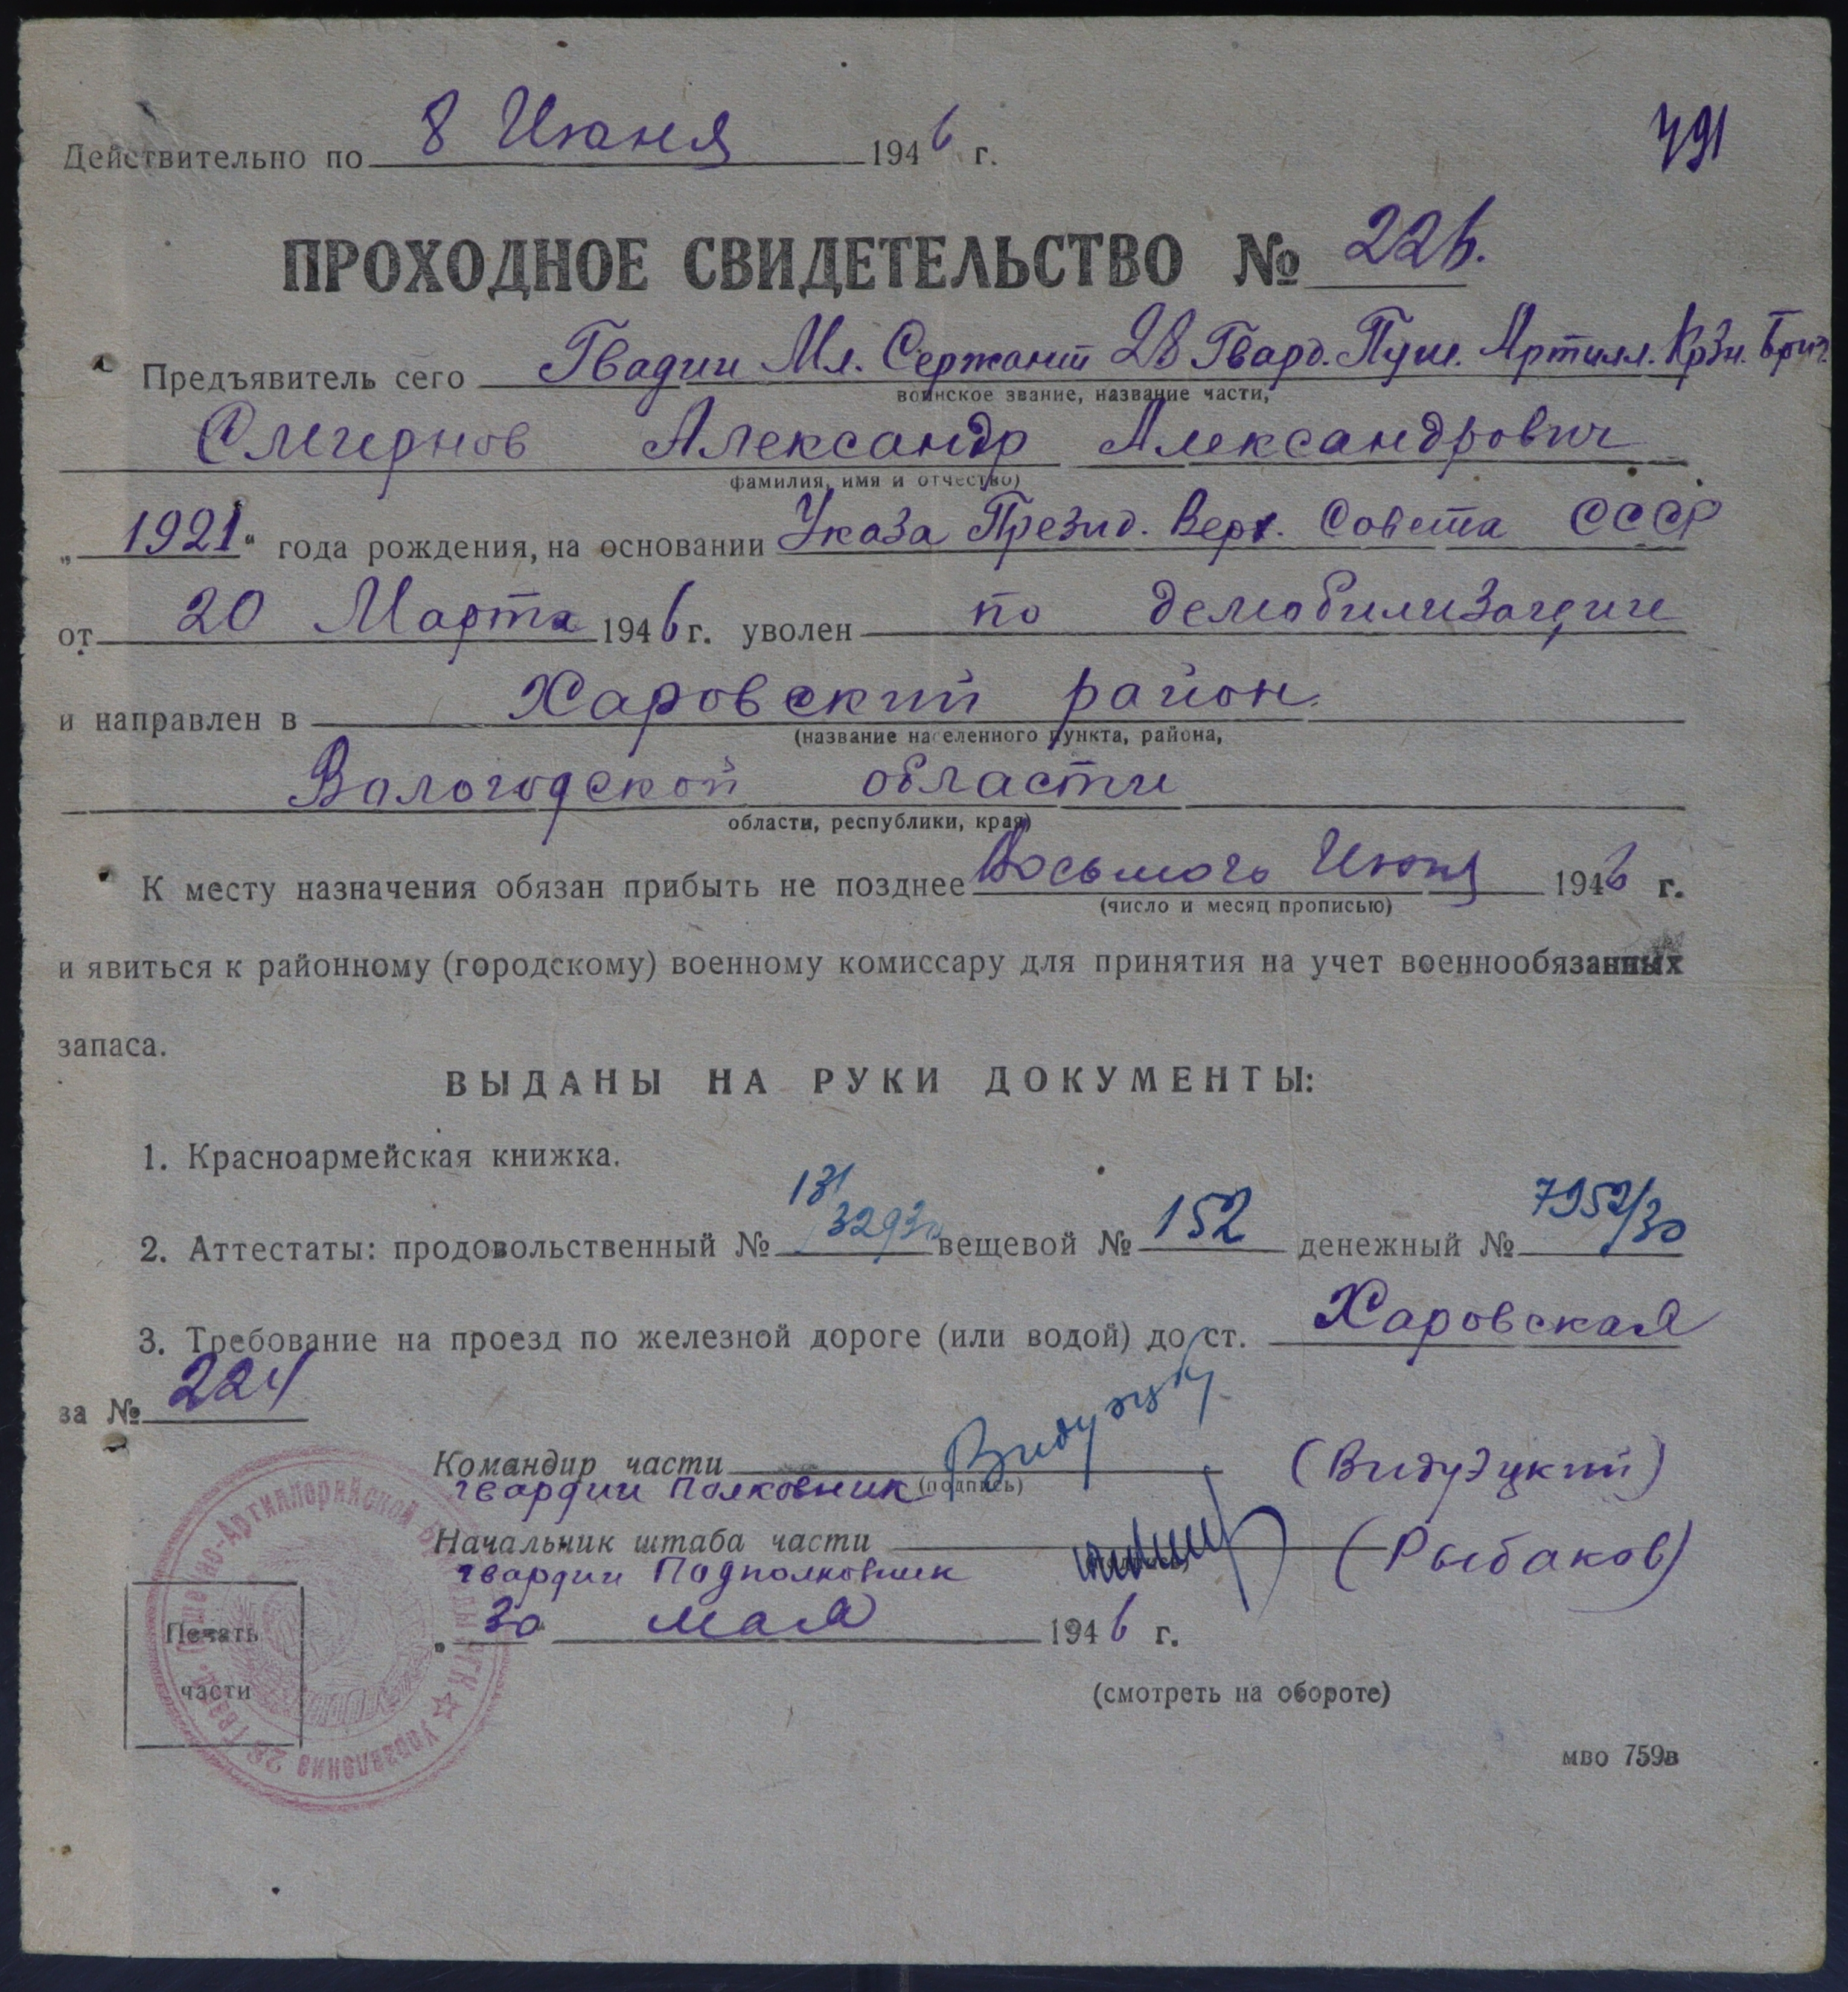 791
Действительно по 8 Июня 1946 г.
ПРОХОДНОЕ СВИДЕТЕЛЬСТВО № 226.
Предъявитель сего Гвадии Мл. Сержант 28 Гвард. Пуш. Артилл. Крзн. Бриг.
воинское звание, название части,
Смирнов Александр Александрович
фамилия, имя и отчество)
„1921" года рождения, на основании Указа Презид. Верх. Совета СССР
от 20 Марта 1946 г. уволен по демобилизации
и направлен в Харовский район.
(название населенного пункта, района,
Вологодской области
области, республики, края)
К месту назначения обязан прибыть не позднее Восьмого Июня 1946 г.
(число и месяц прописью)
и явиться к районному (городскому) военному комиссару для принятия на учет военнообязанных
запаса.
ВЫДАНЫ НА РУКИ ДОКУМЕНТЫ:
1. Красноармейская книжка.
2. Аттестаты: продовольственный № вещевой № 152 денежный № 7952/30
3. Требование на проезд по железной дороге (или водой) до ст. Харовская
за № 224
Командир части (Видузцкий)
гвардии Полковник (подпись)
Начальник штаба части (Рыбаков)
гвардии Подполковник
„30" мая 1946 г.
Печать
части
Управления 28 Гвард. Пушечно-Артиллерийской Бригады РГК
(смотреть на обороте)
мво 759в